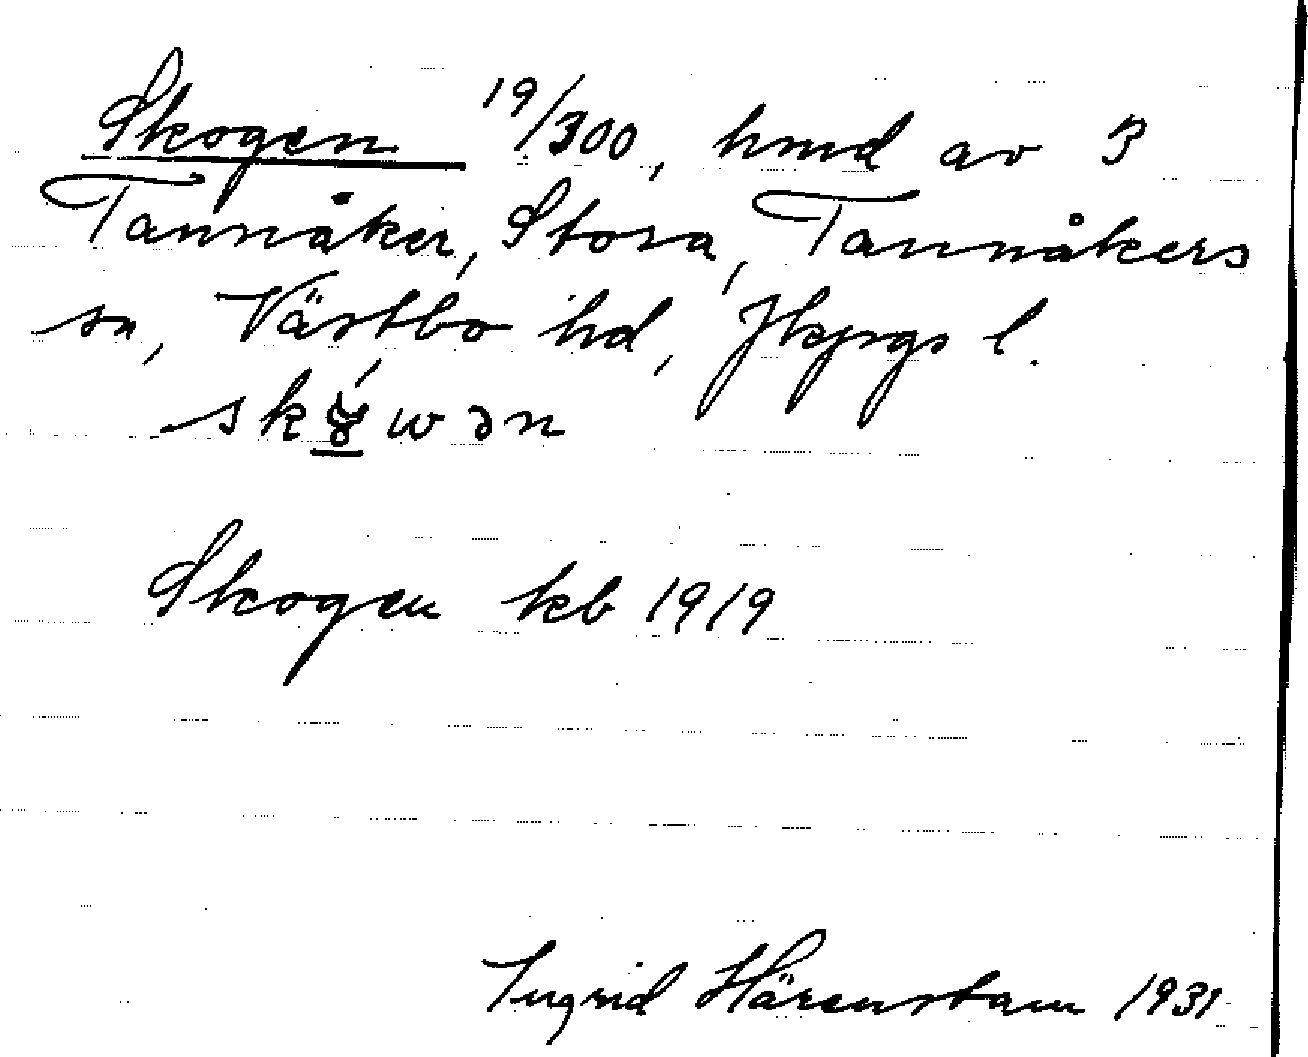 Skogen 19/300, hmd av 3
Tannåker, Stora, Tannåkers
sn, Västbo hd, Jkpgs l.
Skogen kb 1919
Ingrid Härenstam 1931